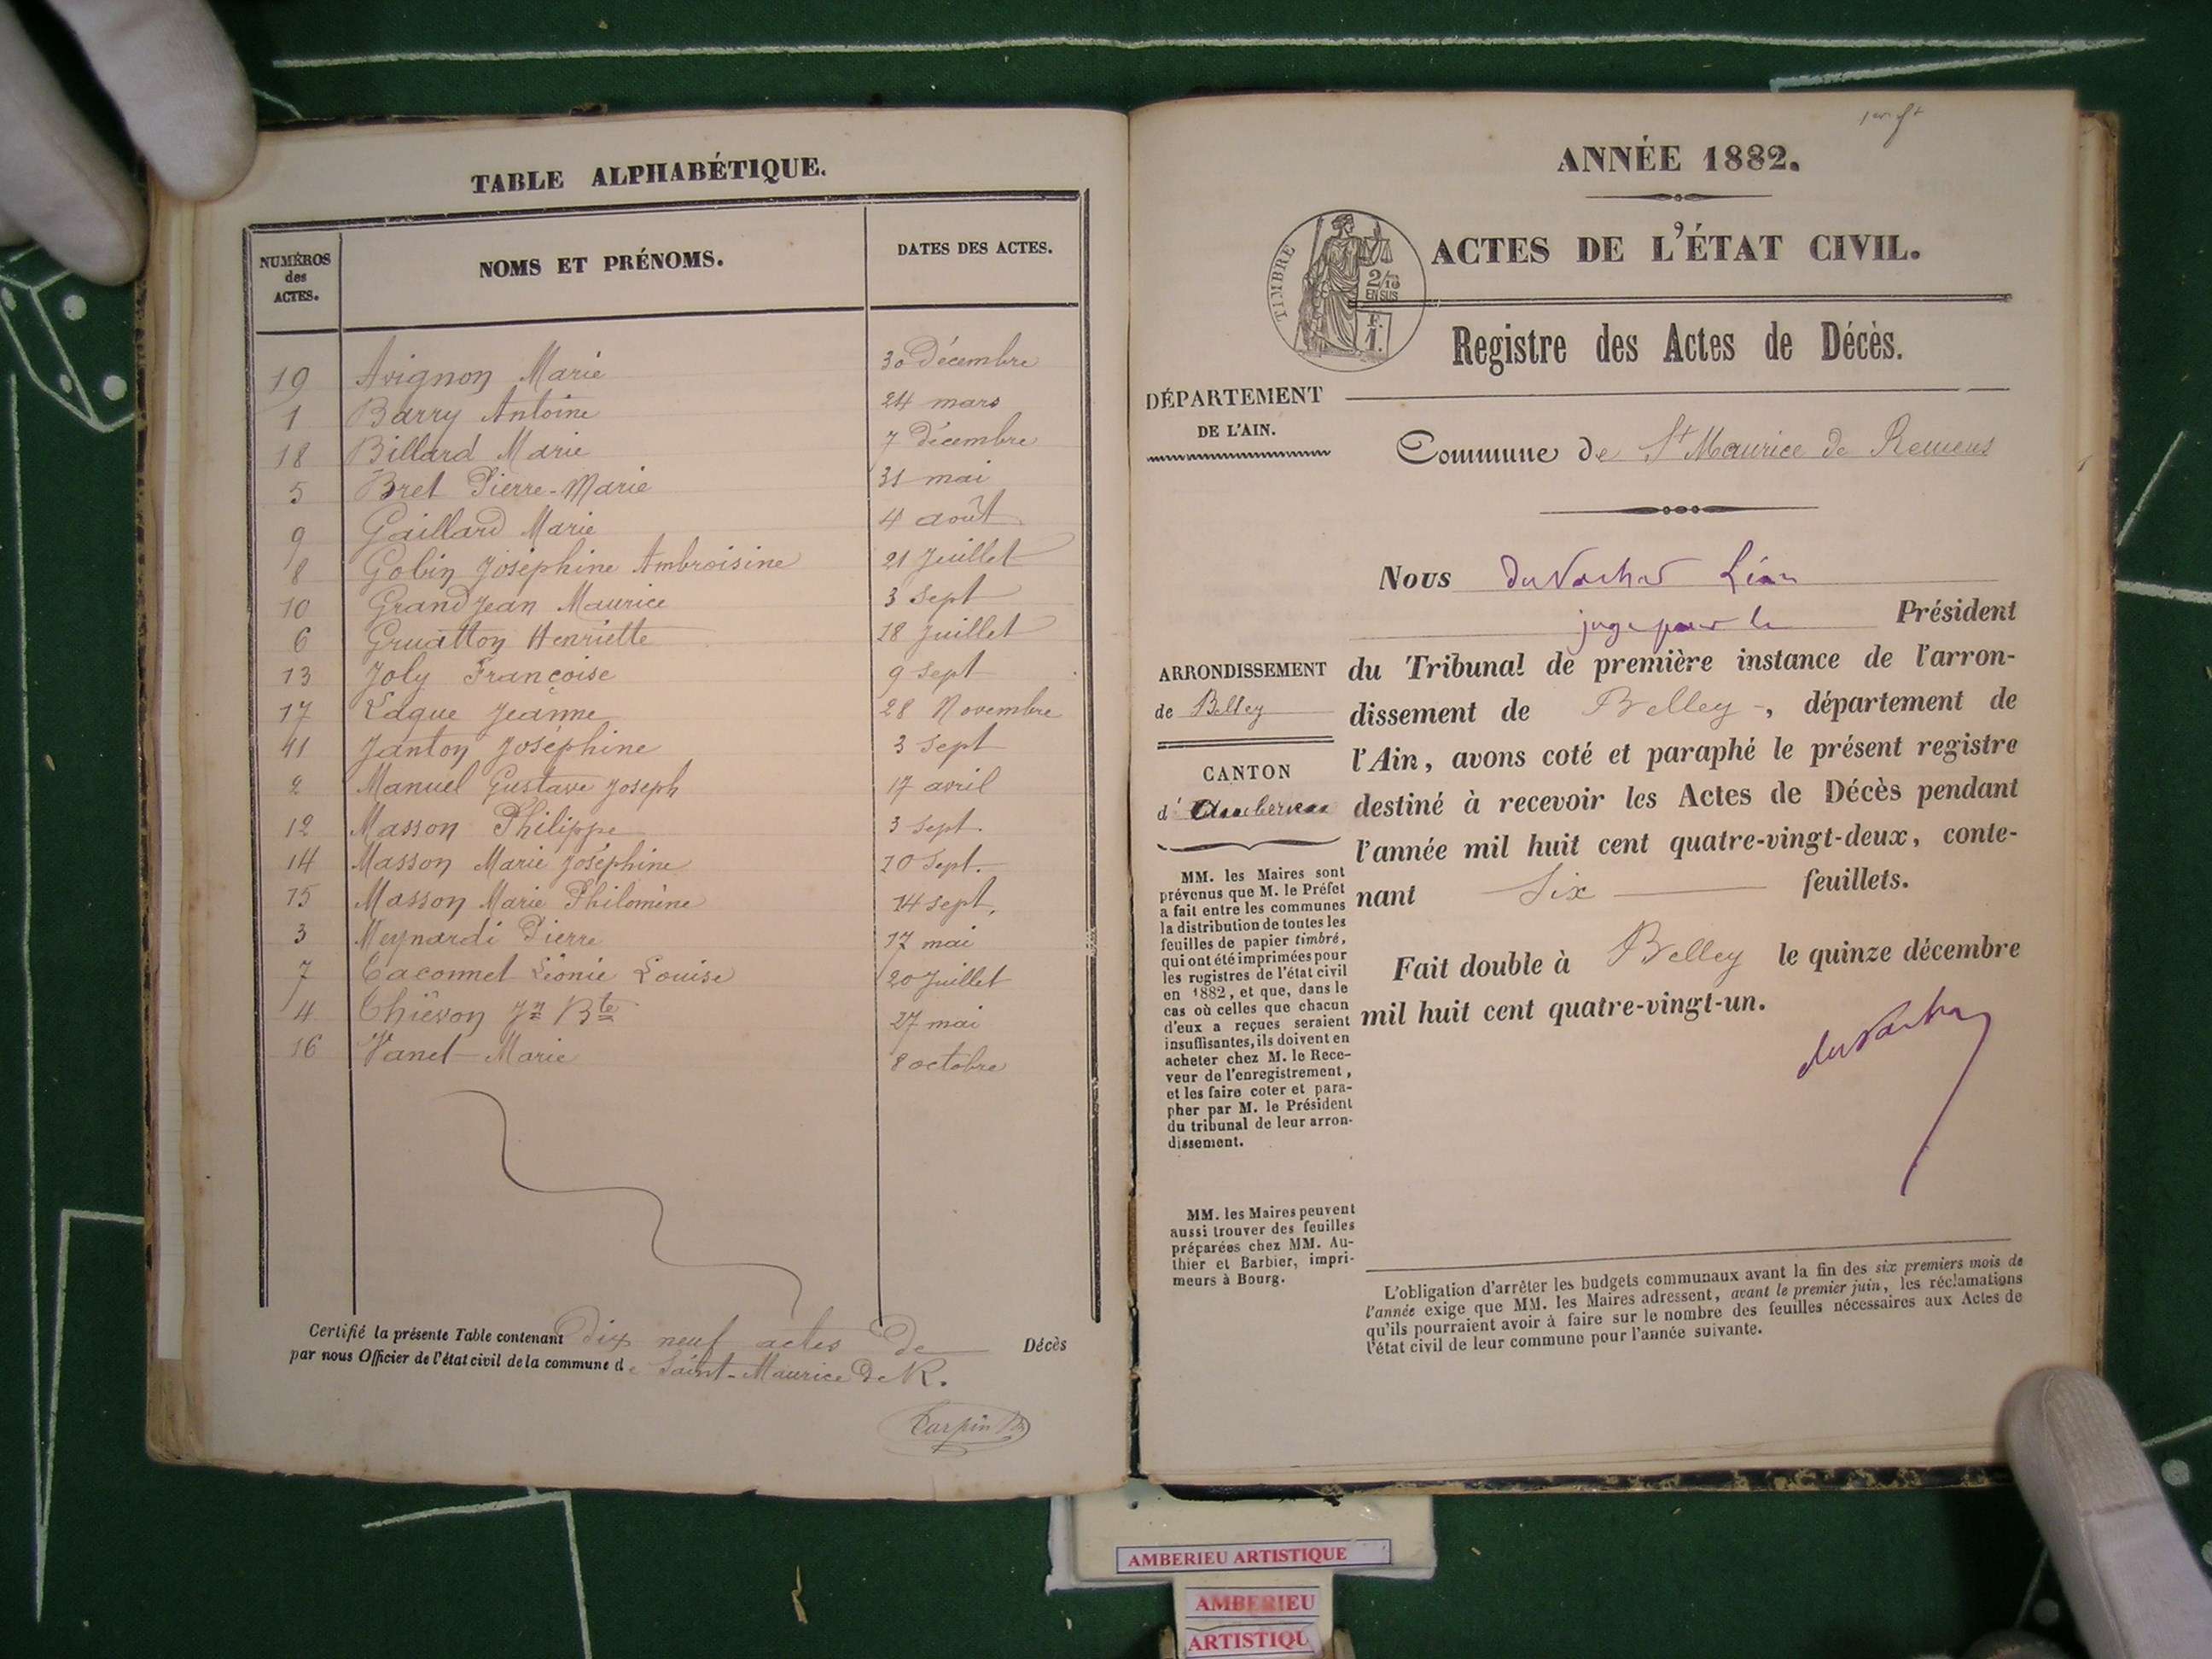 TABLE ALPHABÉTIQUE.
NUMÉROS des ACTES. NOMS ET PRÉNOMS. DATES DES ACTES.
19 Avignon Marie 30 Décembre
1 Barry Antoine 24 mars
18 Billard Marie 7 décembre
5 Bret Pierre-Marie 31 mai
9 Gaillard Marie 4 août
8 Gobin Joséphine Ambroisine 21 Juillet
10 Grandjean Maurice 3 Sept
6 Gruatton Henriette 18 Juillet
13 Joly Françoise 9 Sept
17 Laque Jeanne 28 Novembre
11 Janton Joséphine 3 Sept
2 Manuel Gustave Joseph 17 avril
12 Masson Philippe 3 Sept.
14 Masson Marie Joséphine 10 Sept.
15 Masson Marie Philomène 14 sept.
3 Meynardi Pierre 17 mai
7 Taconnet Léonie Louise 20 Juillet
4 Thiévon Jn Bte 27 mai
16 Vanet Marie 8 octobre
Certifié la présente Table contenant dix neuf actes de Décès
par nous Officier de l'état civil de la commune de Saint-Maurice de R.
Tarpin
1er ft
ANNÉE 1882.
ACTES DE L'ÉTAT CIVIL.
TIMBRE
2/10
EN SUS
F.
1.
Registre des Actes de Décès.
DÉPARTEMENT
DE L'AIN.
Commune de St Maurice de Remens
Nous Léon
juge pour le Président
ARRONDISSEMENT
de Belley
CANTON
d'Ambérieu
du Tribunal de première instance de l'arron-
dissement de Belley, département de
l'Ain, avons coté et paraphé le présent registre
destiné à recevoir les Actes de Décès pendant
l'année mil huit cent quatre-vingt-deux, conte-
nant Six feuillets.
Fait double à Belley le quinze décembre
mil huit cent quatre-vingt-un.
MM. les Maires sont
prévenus que M. le Préfet
a fait entre les communes
la distribution de toutes les
feuilles de papier timbré,
qui ont été imprimées pour
les registres de l'état civil
en 1882, et que, dans le
cas où celles que chacun
d'eux a reçues seraient
insuffisantes, ils doivent en
acheter chez M. le Rece-
veur de l'enregistrement,
et les faire coter et para-
pher par M. le Président
du tribunal de leur arron-
dissement.
MM. les Maires peuvent
aussi trouver des feuilles
préparées chez MM. Au-
thier et Barbier, impri-
meurs à Bourg.
L'obligation d'arrêter les budgets communaux avant la fin des six premiers mois de
l'année exige que MM. les Maires adressent, avant le premier juin, les réclamations
qu'ils pourraient avoir à faire sur le nombre des feuilles nécessaires aux Actes de
l'état civil de leur commune pour l'année suivante.
AMBERIEU ARTISTIQUE
AMBERIEU
ARTISTIQU